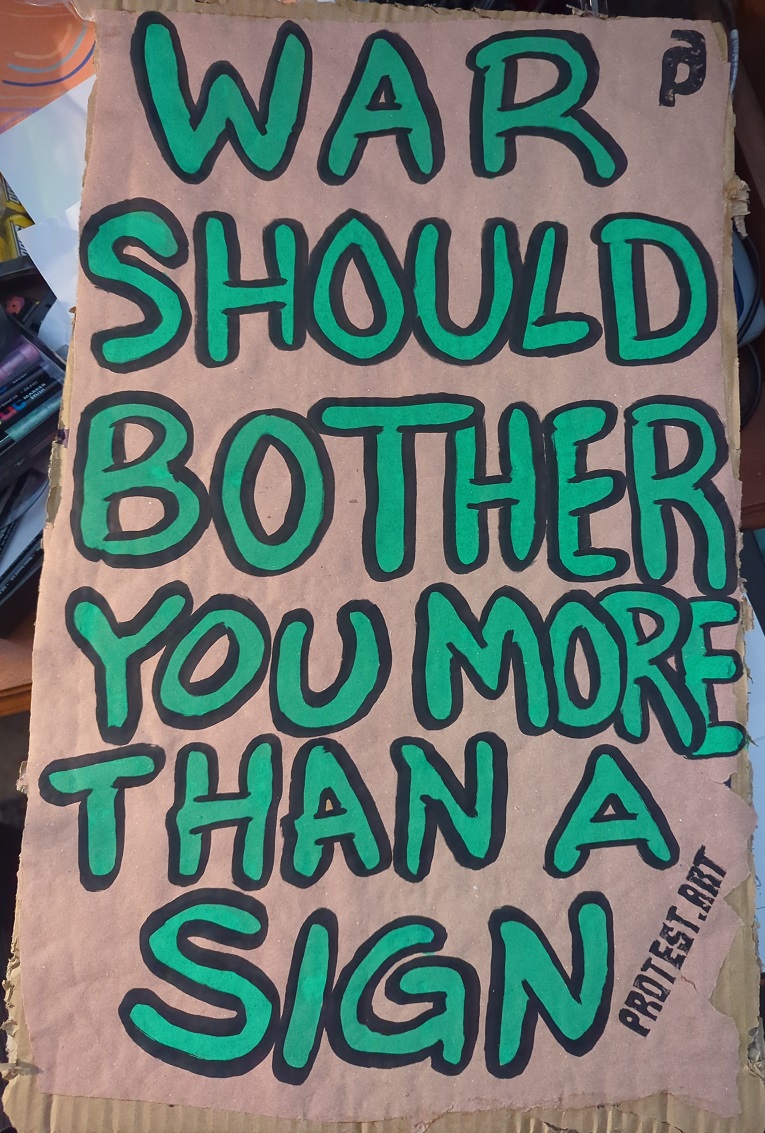 WAR
SHOULD
BOTHER
YOU MORE
THAN A
SIGN
PROTEST.ART